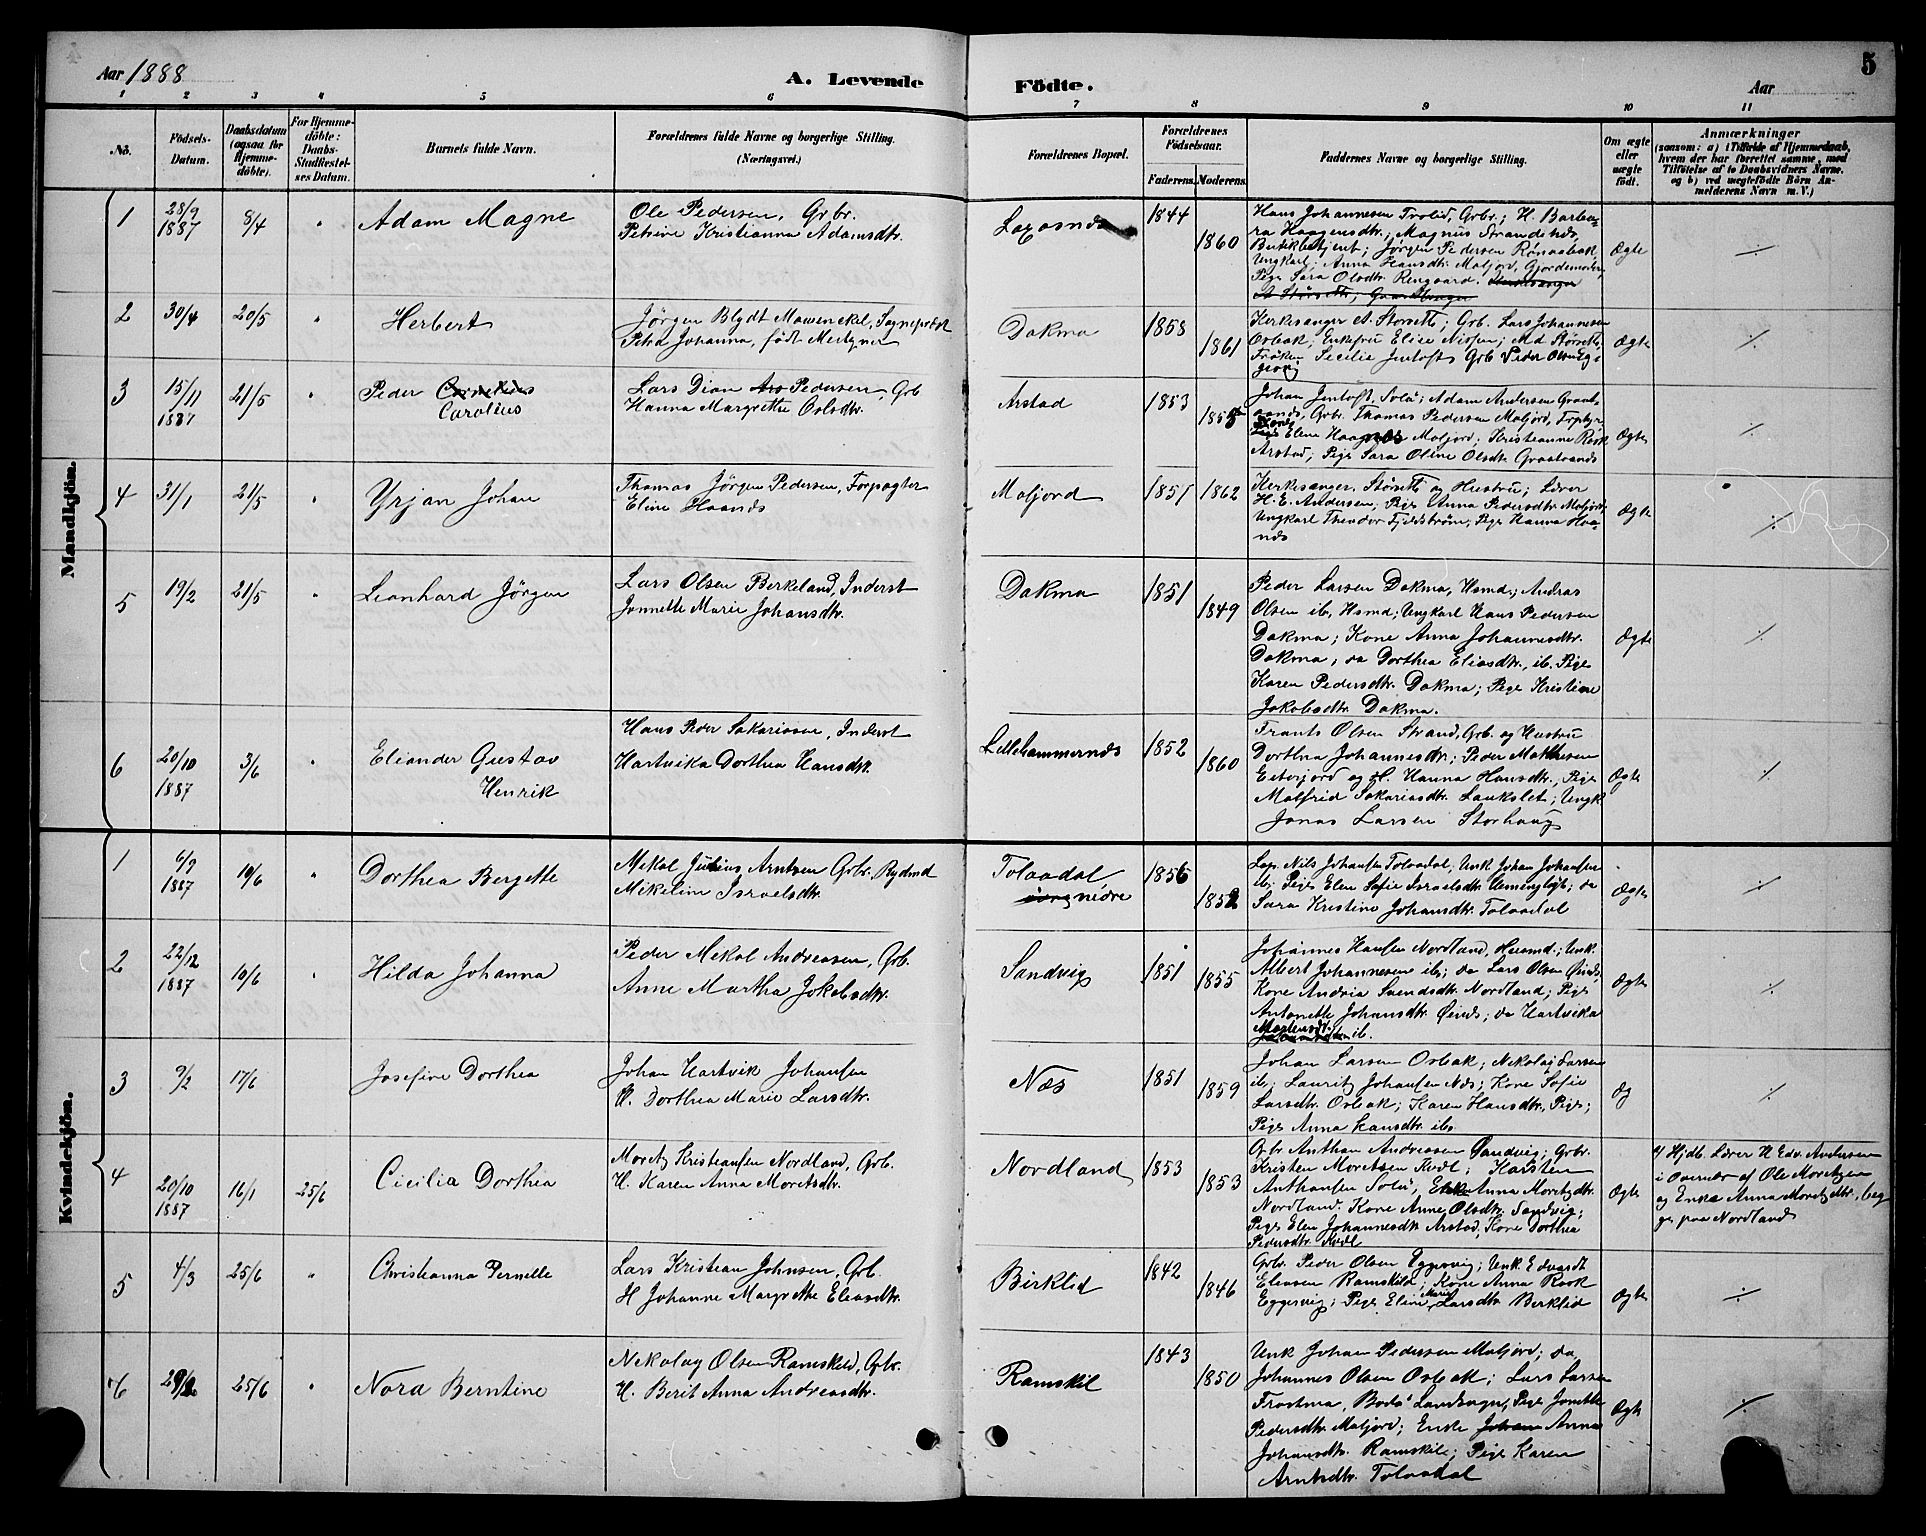 Aar 1888
A. Levende
Födte.
Aar
5
1 2 3 4 5 6 7 8 9 10 11
No.
Födsels-
Datum.
Daabsdatum
(ogsaa for
Hjemme-
döbte).
For Hjemme-
döbte:
Daabs-
Stadfæstel-
ses Datum.
Barnets fulde Navn.
Forældrenes fulde Navne og borgerlige Stilling.
(Næringsvei.)
Forældrenes Bopæl.
Forældrenes
Födselsaar.
Faderens.
Moderens.
Faddernes Navne og borgerlige Stilling.
Om ægte
eller
uægte
födt.
Anmærkninger
(saasom: a) i Tilfælde af Hjemmedaab,
hvem der har forrettet samme, med
Tilföielse af to Daabsvidners Navne.
og b) ved uægtefödte Börn An-
melderens Navn m. V.)
Mandkjön.
1
28/9
1887
8/4
"
Adam Magne
Ole Pedersen, Grbr.
Petrine Kristianna Adamsdtr.
1844
1860
Hans Johannesen Trolid, Grbr.; H. Barba-
ra Haagensdtr.; Magnus Strandenæs,
Butikbetjent; Jørgen Pedersen
Ungkarl; Anna Hansdtr. Moljord, Gjordemoder;
Pige Sara Olsdtr. Rengaard.
Ægte
2
30/4
20/5
"
Herbert
Jörgen Blydt Mowinckel, Sogneprest
Petra Johanna, født
Dokmo
1858
1861
Kirkesanger A. Størseth; Grb. Lars Johannesen
Osbak; Enkefru Elise Nissen; Md Størseth;
Frøken Cecilie Jentoft; Grb Peder Olsen Eg-
gesvig
Ægte
3
15/11
1887
21/5
"
Peder Cornelius
Carolius
Lars Dian Pedersen, Grb
Hanna Margrethe Olsdtr.
Arstad
1853
1855
Johan Jentoft, Solø; Adam Andersen Graat-
aands, Grbr. Thomas Pedersen Moljord, Forpagter;
Kone Eline Haagnæs Moljord; Kristianne Rosk
Arstad; Pige Sara Oline Olsdtr. Graataands
Ægte
4
31/1
21/5
"
Yrjan Johan
Thomas Jörgen Pedersen, Forpagter
Eline Haands
Moljord
1851
1862
Kirkesanger Størseth og Hustru; Lærer
H. E. Andersen; Pige Anna Pedersdtr. Moljord;
Ungkarl Theodor Fjeldstrøm; Pige Hanna Haa-
nds
Ægte
5
19/2
21/5
"
Leonhard Jörgen
Lars Olsen Berkeland, Inderst
Jonnette Marie Johansdtr.
Dokmo
1851
1849
Peder Larsen Dokmo, Hsmd.; Andreas
Olsen ib., Hsmd; Ungkarl Hans Pedersen
Dokmo; Kone Anna Johannesdtr.
Dokmo, do Dorthea Eliasdtr., ib. Pige
Karen Pedersdtr. Dokmo; Pige Kristine
Jakobsdtr. Dokmo.
Ægte
6
20/10
1887
3/6
"
Eliander Gustav
Henrik
Hans Peder Sakariasen, Inderst
Hartvika Dorthea Hansdtr.
Lillehammernæs
1852
1860
Frants Olsen Strand, Grb. og Hustru
Dorthea Johannesdtr.; Peder Mathisen
Eiterjord og H. Hanna Hansdtr., Pige
Malfrid Sakariasdtr. Laukslet; Ungk
Jonas Larsen Storhaug
Ægte
Kvindekjön.
1
6/9
1887
10/6
"
Dorthea Bergette
Mikal Julius Arntsen Grbr. Rydmd
Mikeline Israelsdtr.
Tolaadal
nedre
1856
1852
Nils Johansen Tolaadal; Unk Johan Johansen
ib; Pige Elen Sofie Israelsdtr. ; do
Sara Kristine Johansdtr. Tolaadal
Ægte
2
22/12
1887
10/6
"
Hilda Johanna
Peder Mikal Andreassen, Grb.
Anne Martha Jakobsdtr.
Sandvig
1851
1855
Johannes Hansen Nordland, Husmd; Unk.
Albert Johannesen ib; do Lars Olsen Øinæs;
Kone Andria Svendsdtr. Nordland; Pige
Antonette Johansdtr. Øinæs; do Hartvika
Mortensdtr. ib.
Ægte
3
9/2
17/6
Josefine Dorthea
Johan Hartvik Johansen
H. Dorthea Marie Larsdtr.
Næs
1851
1859
Johan Larsen Osbak; Nikolaj Larsen
ib; Lauritz Johansen Næs; Kone Sofie
Larsdtr. Osbak; Karen Hansdtr., Pige;
Pige Anna Hansdtr ib.
Æg
4
20/10
1887
16/1
25/6
Cicilia Dorthea
Moritz Kristiansen Nordland, Grb.
H. Karen Anna Moritsdtr.
Nordland
1853
1853
Grbr Anthon Andreassen Sandvig; Grbr.
Kristen Moritsen Kvål; Karsten
Anthonsen Solø; Enke Anna Moritzdtr.
Nordland. Kone Anne Olsdtr. Sandvig;
Pige Elen Johannesdtr Arstad, Kone Dorthea
Pedersdtr. Kvål
Ægte
4/ Hjdb. Lærer H Edv. Andersen
i Overvær af Ole Moritzsen
og Enke Anna Moritzdtr., beg-
ge paa Nordland
5
4/3
25/6
"
Christianna Pernelle
Lars Kristian Johnsen, Grb.
H Johanne Margrethe Eliasdtr.
Birklid
1842
1846
Grbr. Peder Olsen Eggesvig; Unk. Edvardt
Eliasen Ramskild; Kone Anna Rosk
Eggesvig; Pige Eline Marie Larsdtr Berklid
Ægte
6
25/6
"
Nora Berntine
Nikolay Olsen Ramskild, Grbr.
H. Berit Anna Andreasdtr.
Ramskil
1843
1850
Unk Johan Pedersen Moljord; do
Johannes Olsen Osbak; Lars Larsen
Frostmo, Bodø Landsogn, Pige Jonette
Pedersdtr Moljord; Enke Johan Anna
Johansdtr. Ramskil; Pige Karen
Arntsdtr. Tolaadal
Ægte